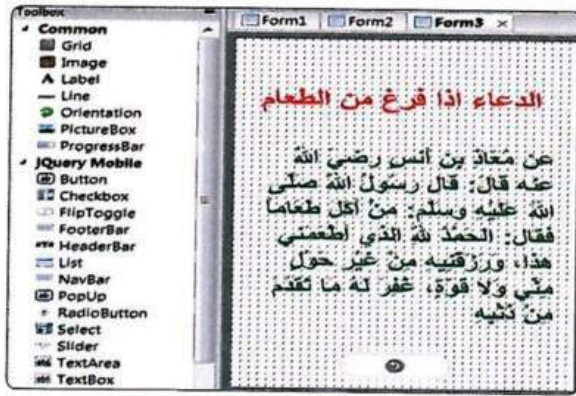 Toolbox
Common
Grid
Image
Label
Line
Orientation
PictureBox
ProgressBar
JQuery Mobile
Button
Checkbox
FlipToggle
FooterBar
HeaderBar
List
NavBar
PopUp
RadioButton
Select
Slider
TextArea
TextBox
Form1 Form2 Form3
الدعاء اذا فرغ من الطعام
عن مُعَاذ بن أنس رضيَ اللهُ
عنه قال: قال رسولُ اللهُ صلَّى
اللهُ عليْهِ وسلَّم: مَنْ أكل طعاماً
فقال: الحمْدُ للهِ الذي أطعمني
هذا، ورزقنِيهِ مِنْ غيْر حوْلٍ
منِّي ولا قوةٍ، غفِر لهُ ما تقدَّمَ
مِنْ ذنْبِهِ